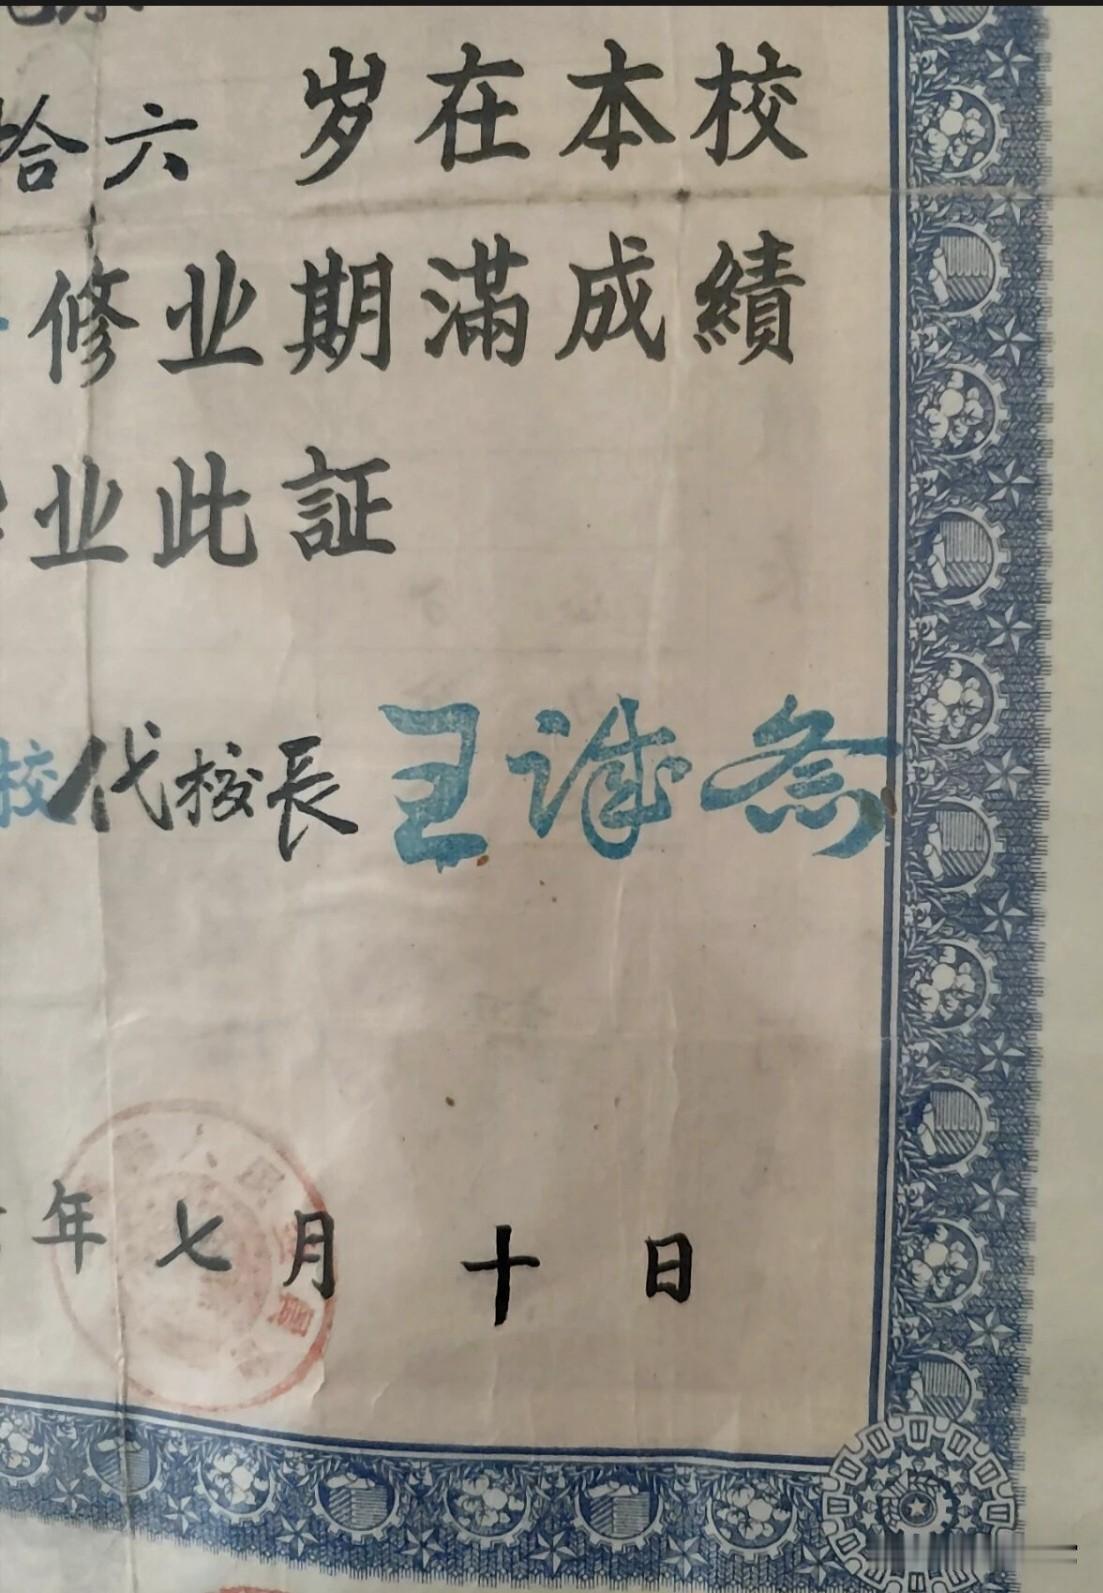 拾六 岁在本校
修业期滿成績
业此証
校代校長 王
年七月十日